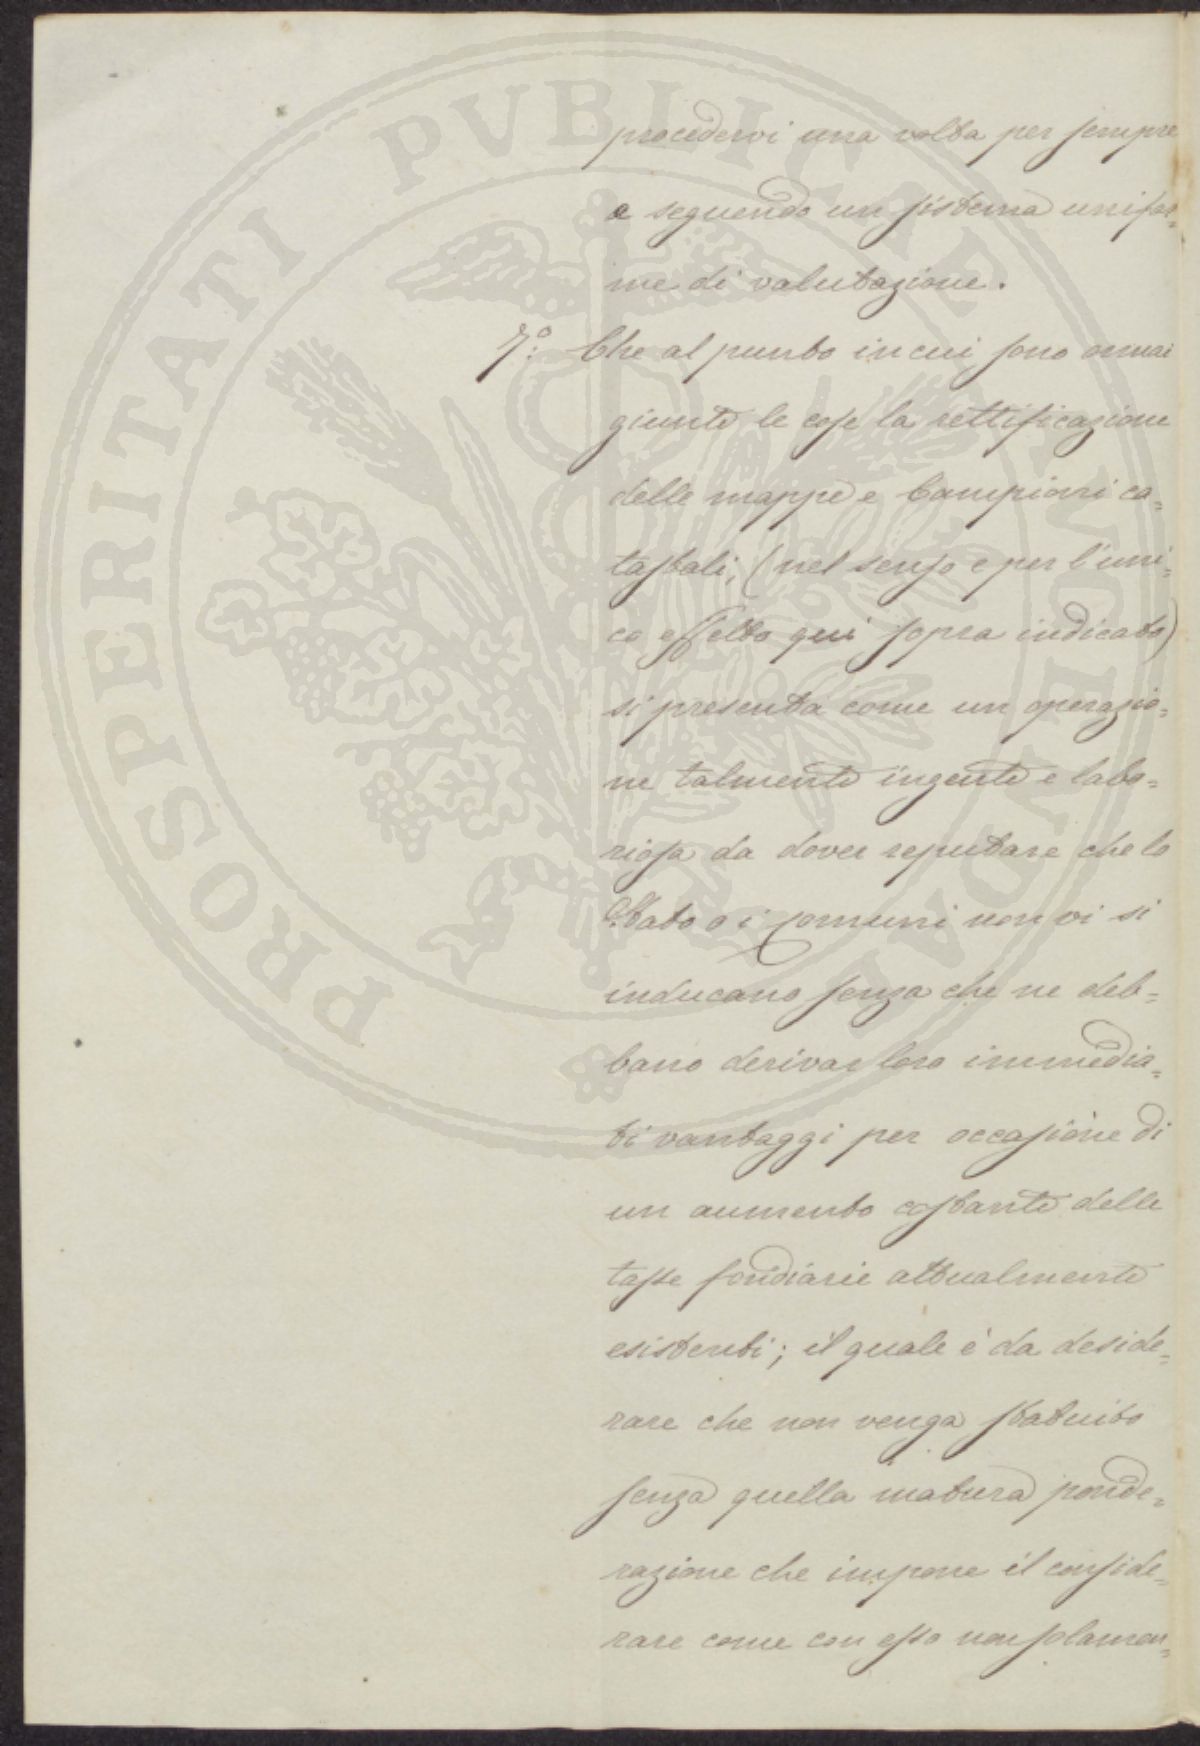 procedervi una volta per sempre
e seguendo un sistema unifor=
me di valutazione.
7.º Che al punto in cui sono ormai
giunte le cose la rettificazione
delle mappe e Campioni ca=
tastali, (nel senso e per l'uni=
co effetto qui sopra indicato)
si presenta come un operazio=
ne talmente ingente e labo=
riosa da dover reputare che lo
Stato o i Comuni non vi si
inducano senza che ne deb=
bano derivar loro immedia=
ti vantaggi per occasione di
un aumento costante delle
tasse fondiarie attualmente
esistenti; il quale è da deside=
rare che non venga statuito
senza quella matura ponde=
razione che impone il conside=
rare come con esso non solamen=
PROSPERITATI PVBLICAE AVGENDAE